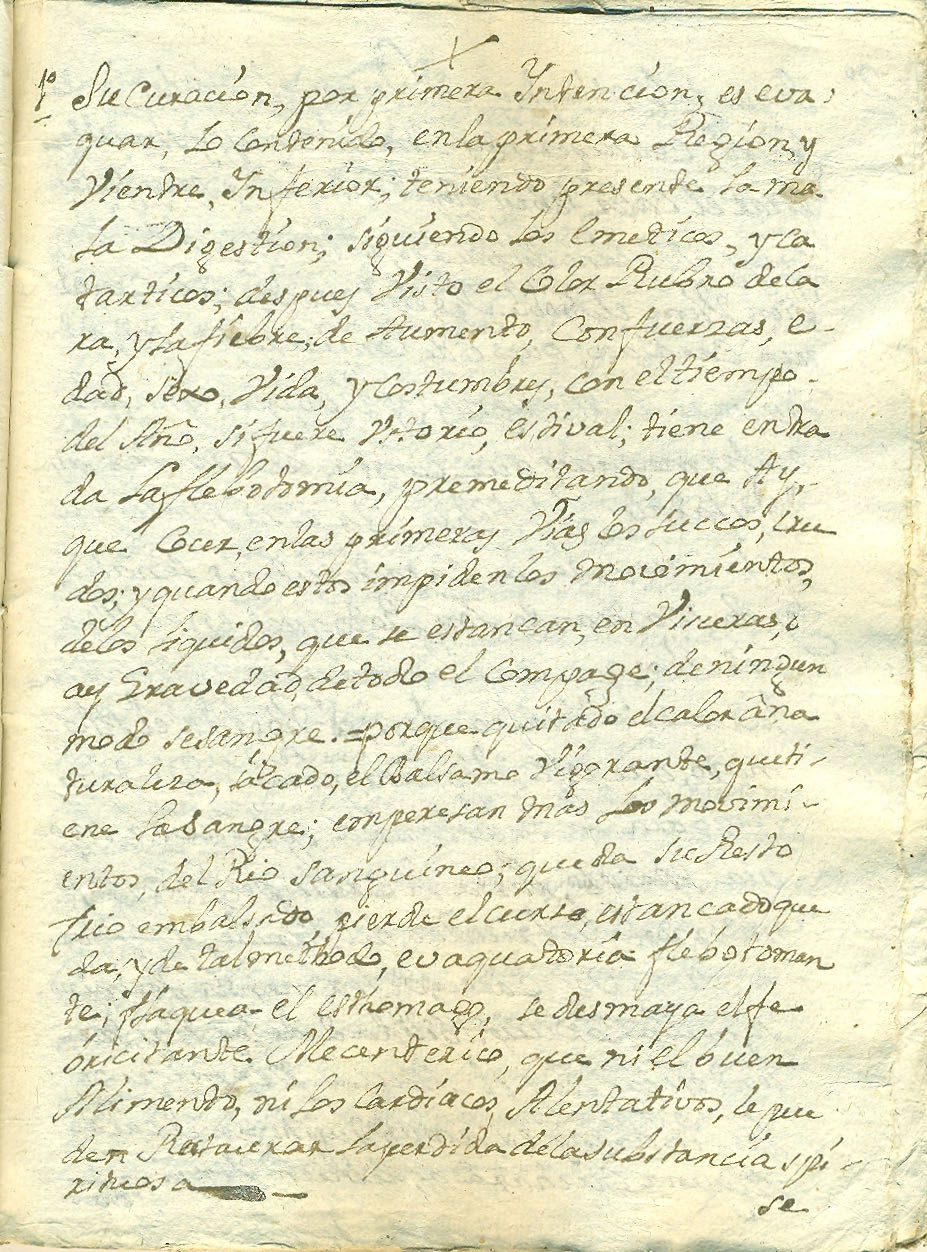 1º Su Curación, por primera Yntención, es eva-
quar, Lo Contenido, en la primera Region, y
Vientre, Ynferior; teniendo, presente La ma-
la Digestion; siguiendo los Emeticos, y Ca
tarticos; despues Visto el Color Rubro de Ca
ra, y La fiebre; de Aumento, Con fuerzas, e-
dad, sexo, Vida, y Costumbres, con el tiempo-
del Año, si fuere Vtorio, estival; tiene entra
da La flebotomia, premeditando, que Ay,-
que Cocer, en las primeras Vias los succos, cru
dos; y quando estos impiden los movimientos,
de los Liquidos, que se estancan, en Visceras, i
ay Gravedad, de todo el Compage; de ningun
modo se sangre. = porque quitado el calor â na
turaleza, sacado, el Balsamo Vigorante, que ti-
ene La Sangre; emperesan mas Los movimi-
entos, del Rio Sanguineo; queda su Resto
frio embalsado, pierde el curso, estancado que
da, y de tal methodo, evaquatoria flebotoman
te; flaquea el esthomago, se desmaya el fe
bricitante Mecenterico, que ni el buen
Alimento, ni Los Cardiacos, Alentativos, le pue
den Restaurar La perdida de la substancia spi-
rituosa
se